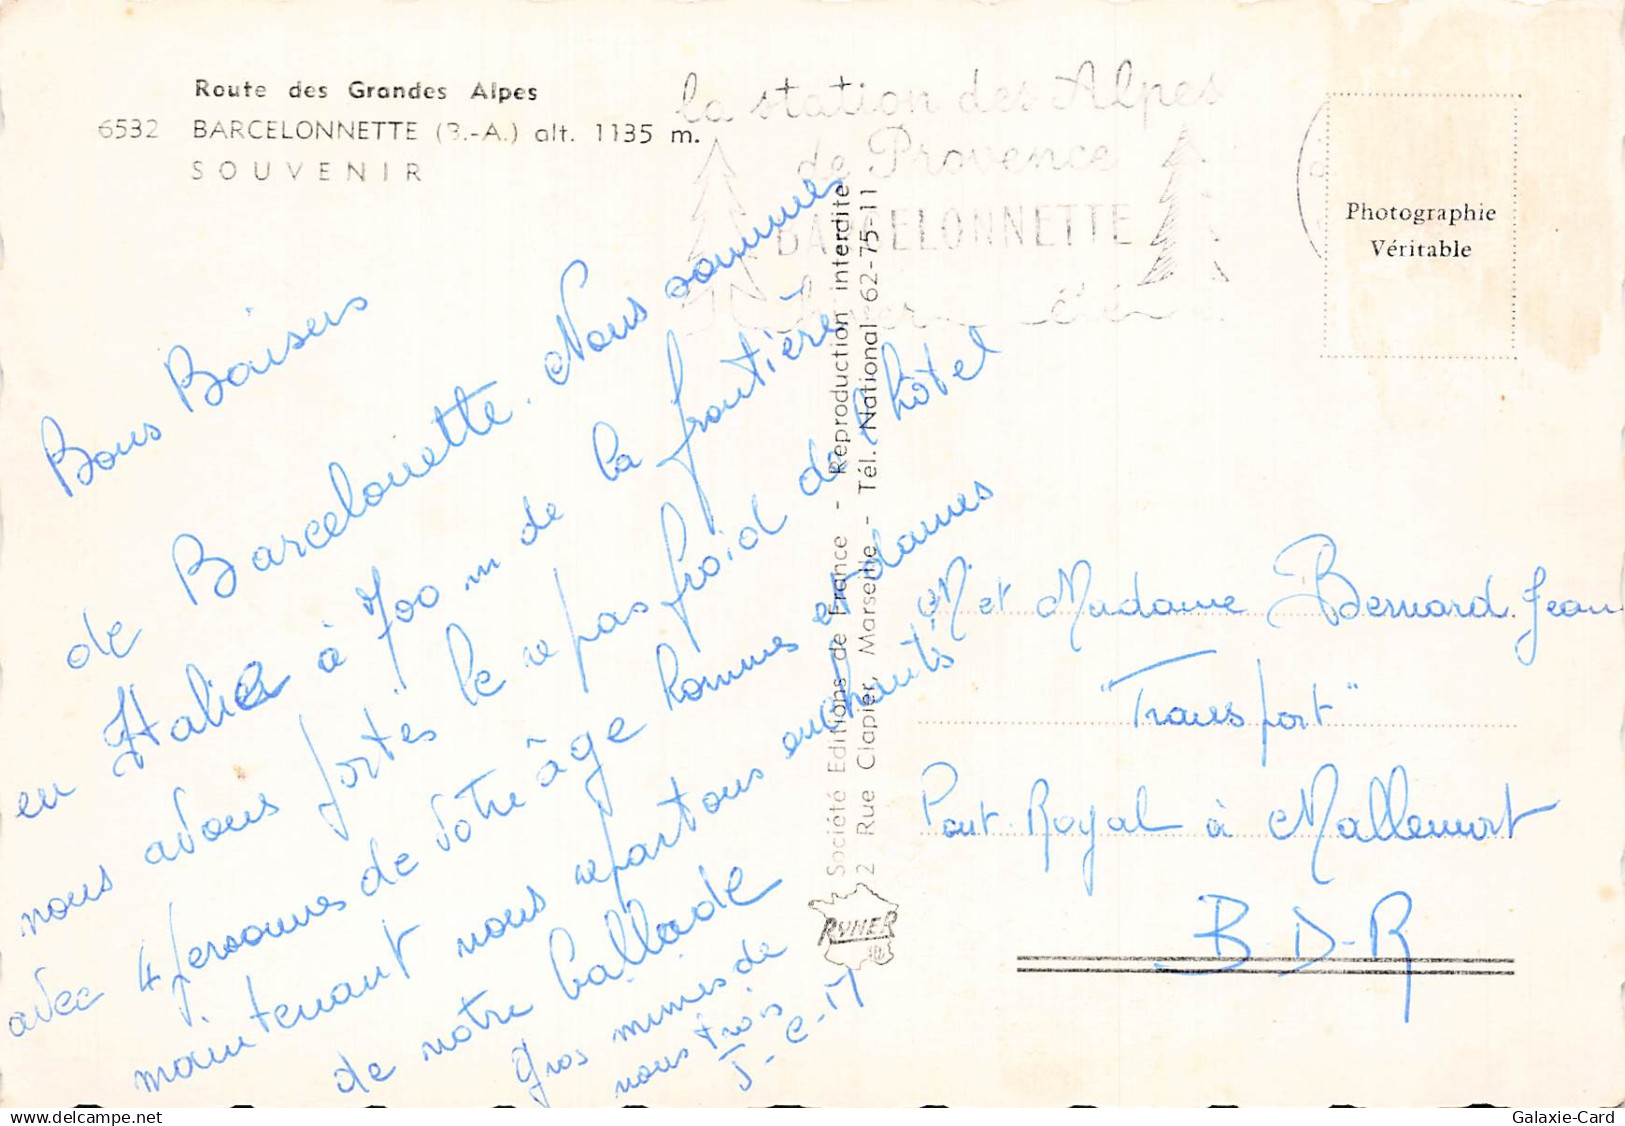 Route des Grandes Alpes
6532 BARCELONNETTE (B.-A.) alt. 1135 m.
SOUVENIR
la station des Alpes
de Provence
BARCELONNETTE
hiver été
Photographie
Véritable
Bons Baisers
de Barcelonette. Nous sommes
en Italie à 700 m de la frontière
nous avons portés le repas froid de l'hôtel
avec 4 personnes de votre âge hommes et dames
maintenant nous repartons enchantés
de notre ballade
Gros mimis de
nous trois
J-C-M
Société Editions de France - Reproduction interdite
2 Rue Clapier, Marseille - Tél. National 62-75-11
RYNER
M et Madame Bernard Jean
"Transport"
Pont Royal à Mallemort
B-D-R
www.delcampe.net
Galaxie-Card